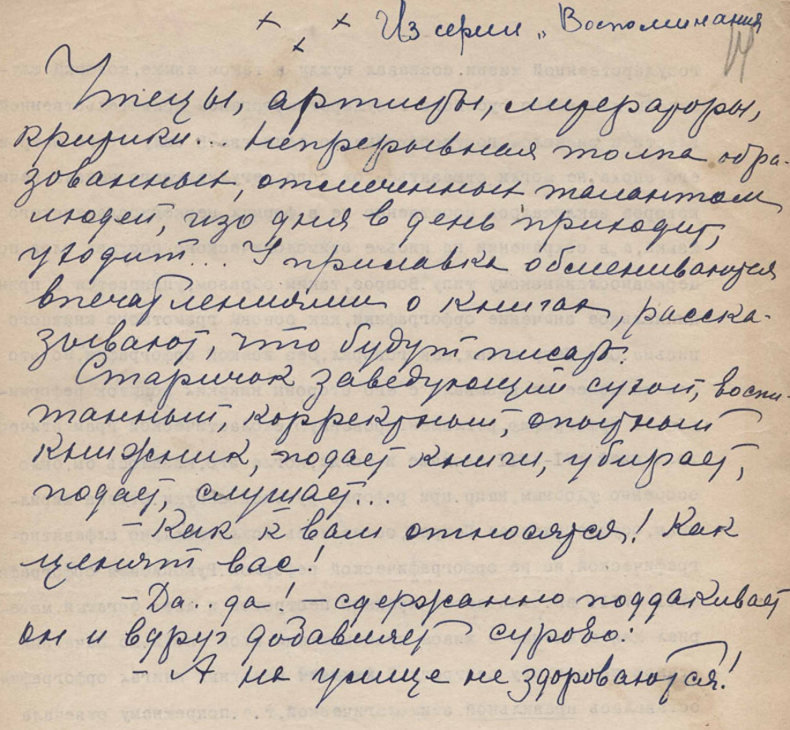 Из серии „Воспоминания
14
Чтецы, артисты, литераторы,
критики... Непрерывная толпа обра-
зованных, отмеченных талантом
людей, изо дня в день приходит,
уходит... У прилавка обмениваются
впечатлениями о книгах, расска-
зывают, что будут писать.
Старичок заведующий сухой, воспи-
танный корректный, опытный
книжник, подает книги, убирает,
подает, слушает...
– Как к вам относятся! Как
ценят вас!
– Да, да! – сдержанно поддакивает
он и вдруг добавляет сурово:
– А на улице не здороваются!